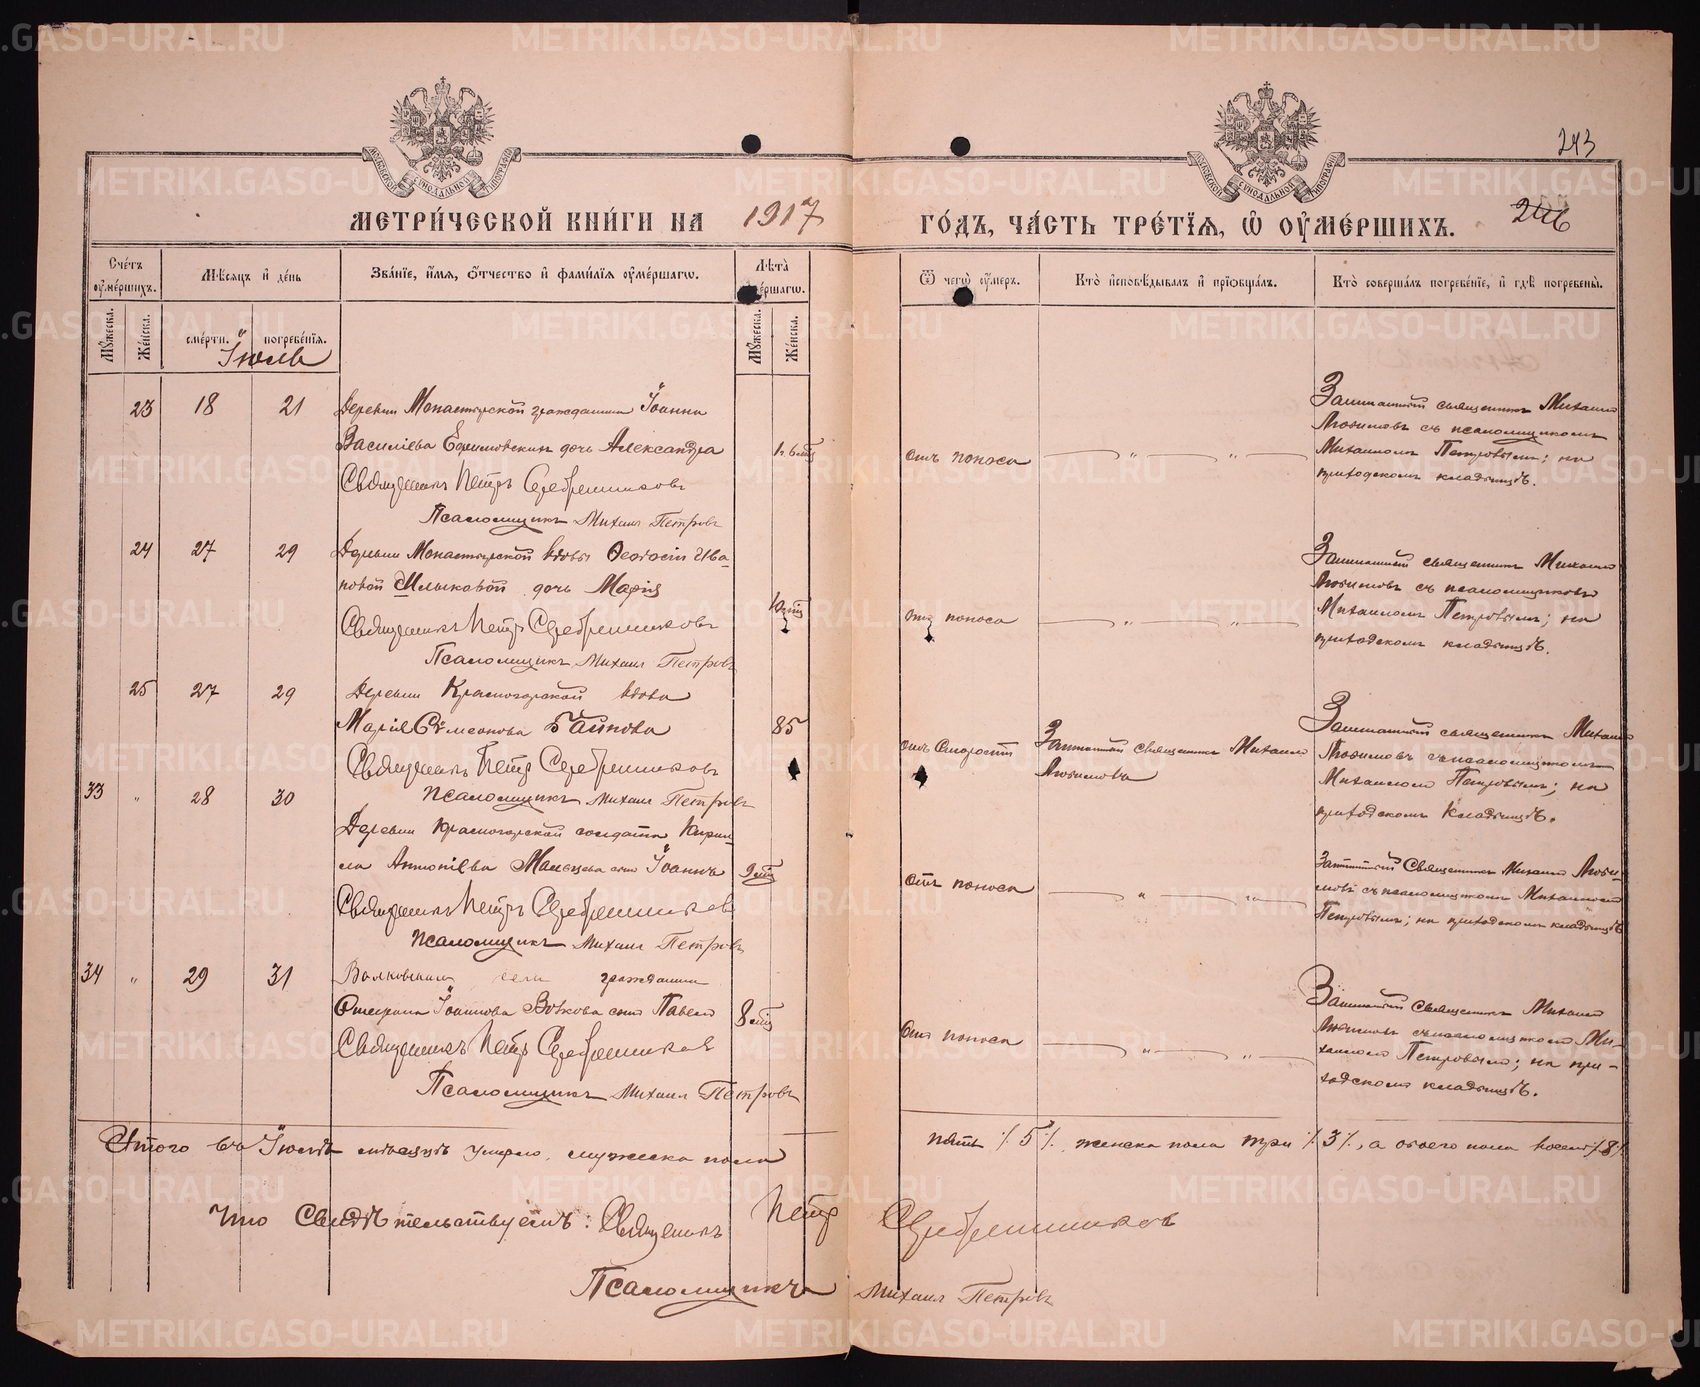 243
МЕТРИ́ЧЕСКОЙ КНИ́ГИ НА 1917 ГО́ДЪ, ЧА́СТЬ ТРЕ́ТІЯ, Ѡ ОУМЕ́РШИХЪ.
246
Счетъ оумершихъ.
Мѣсяцъ и день
Званіе, имя, отчество и фамилія оумершагѡ.
Лѣта оумершагѡ.
Ѿ чегѡ оумеръ.
Кто исповѣдывалъ и пріобщалъ.
Кто совершалъ погребеніе, и гдѣ погребены.
Мужеска.
Женска.
смерти.
погребенія.
Мужеска.
Женска.
Іюль
23 18 21
Деревни Монастырской гражданина Іоанна
Василіева Ефимовскихъ дочь Александра
Священникъ Петръ Серебренниковъ
Псаломщикъ Михаил Петровъ
отъ поноса
Заштатный священникъ Михаилъ
Любимовъ съ псаломщикомъ
Михаиломъ Петровымъ; на
приходскомъ кладбищѣ.
24 27 29
Деревни Монастырской вдовы Ѳеодосіи Ива-
новой дочь Марія
Священникъ Петръ Серебренниковъ
Псаломщикъ Михаил Петровъ
отъ поноса
Заштатный священникъ Михаилъ
Любимовъ съ псаломщикомъ
Михаиломъ Петровымъ; на
приходскомъ кладбищѣ.
25 27 29
Деревни Красногорской вдова
Марія Сѵмеонова 85
Священникъ Петръ Серебренниковъ
Псаломщикъ Михаил Петровъ
отъ старости
Заштатный священникъ Михаилъ
Любимовъ
Заштатный священникъ Михаилъ
Любимовъ съ псаломщикомъ
Михаиломъ Петровымъ; на
приходскомъ кладбищѣ.
33 " 28 30
Деревни Красногорской солдата Кирил-
ла Антоніева сынъ Іоаннъ
Священникъ Петръ Серебренниковъ
Псаломщикъ Михаил Петровъ
отъ поноса
Заштатный священникъ Михаилъ Люби-
мовъ съ псаломщикомъ Михаиломъ
Петровымъ; на приходскомъ кладбищѣ
34 " 29 31
Волковскаго села гражданина
Іоаннова сынъ Павелъ 8 мѣс
Священникъ Петръ Серебренниковъ
Псаломщикъ Михаил Петровъ
отъ поноса
Заштатный священникъ Михаилъ
Любимовъ съ псаломщикомъ Ми-
хаиломъ Петровымъ; на при-
ходскомъ кладбищѣ.
Итого въ Іюлѣ мѣсяцѣ умерло: мужеска пола пять /5/, женска пола три /3/, а обоего пола восемь /8/.
Что свидѣтельствуемъ: Священникъ Петръ Серебренниковъ
Псаломщикъ Михаил Петровъ
METRIKI.GASO-URAL.RU